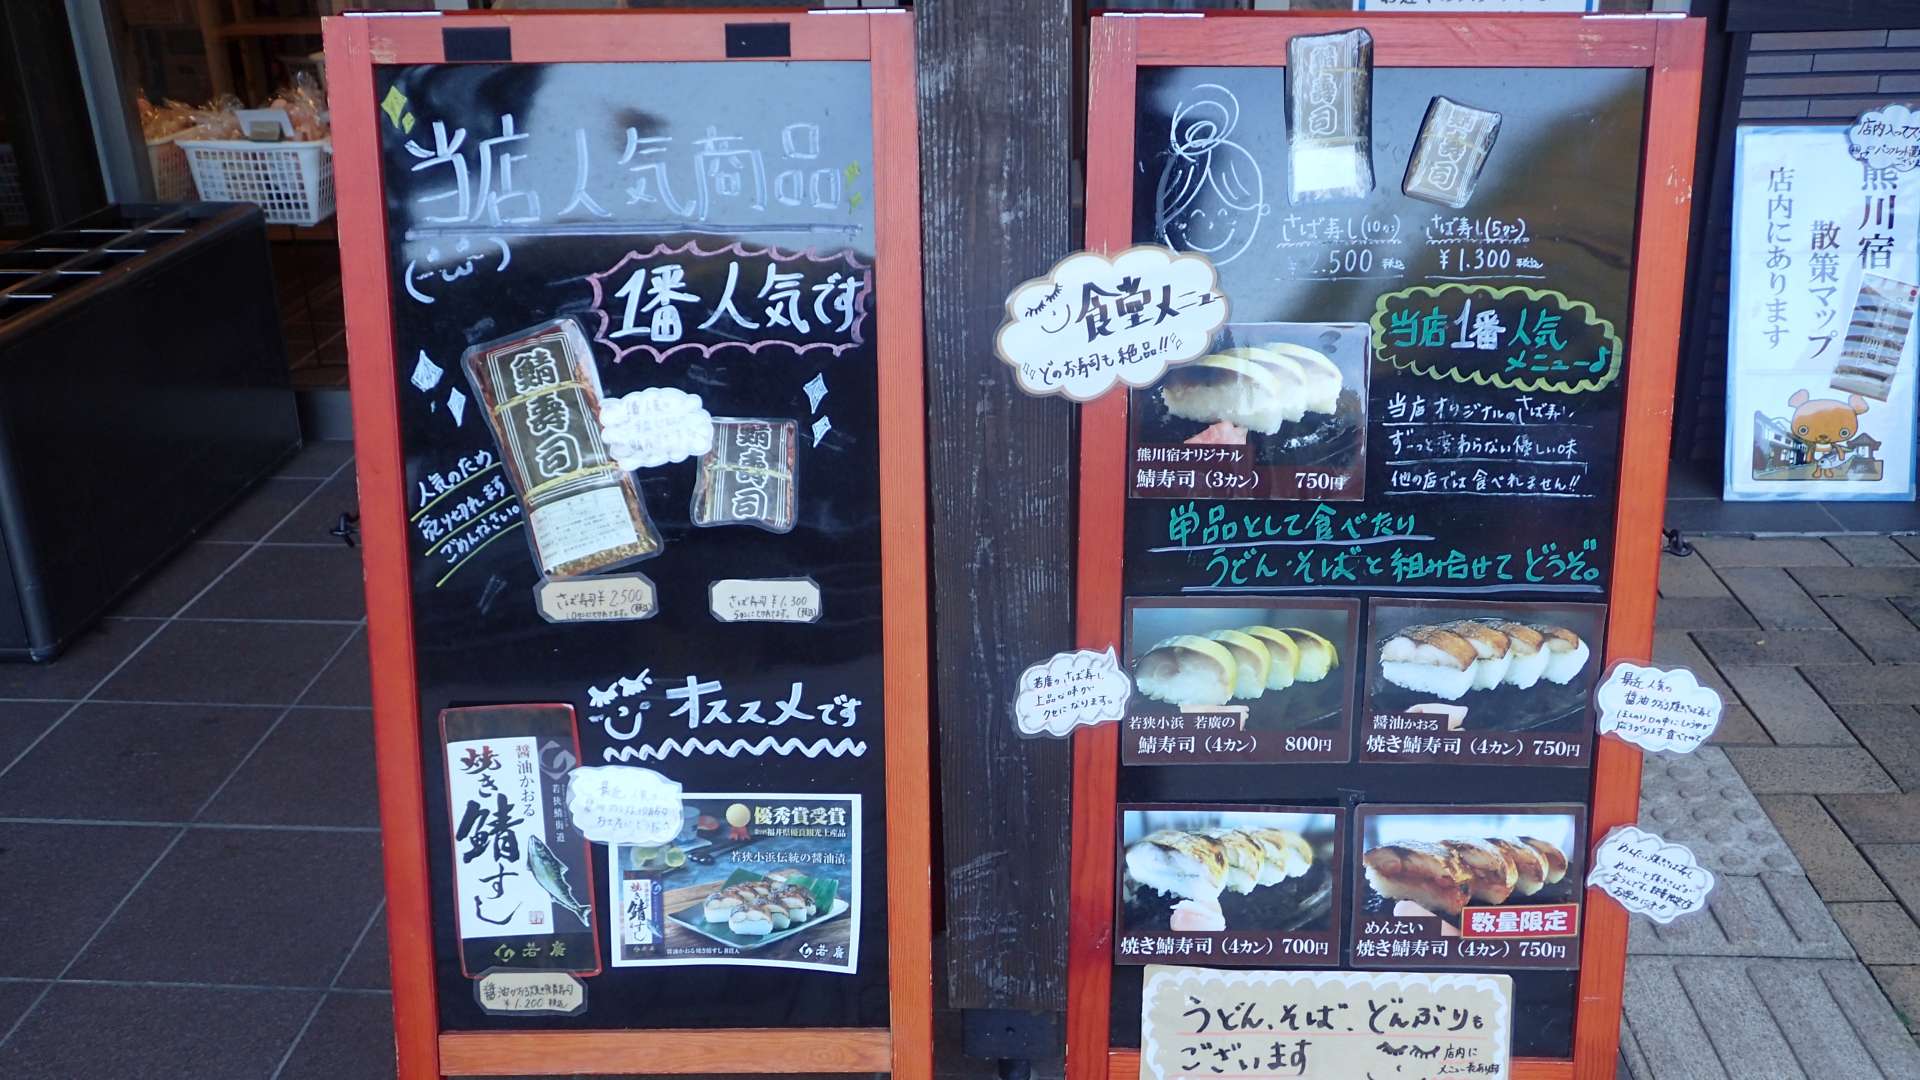 当店人気商品
1番人気です
鯖寿司
鯖寿司
人気のため
売り切れます
ごめんなさい。
さば寿司 ¥2,500
(税込)
さば寿司 ¥1,300
(税込)
オススメです
醤油かおる
焼き鯖すし
若狭鯖街道
若廣
醤油かおる焼き鯖寿司
¥1,200 税込
優秀賞受賞
福井県優良観光土産品
若狭小浜伝統の醤油漬
焼き鯖すし
若廣
鯖寿司
鯖寿司
さば寿し(10カン)
¥2,500 税込
さば寿し(5カン)
¥1,300 税込
食堂メニュー
どのお寿司も絶品!!
当店1番人気
メニュー♪
当店オリジナルのさば寿し
ず〜っと変わらない優しい味
他の店では食べれません!!
熊川宿オリジナル
鯖寿司(3カン) 750円
単品として食べたり
うどん・そばと組み合せてどうぞ。
若廣のさば寿し
上品な味が
クセになります。
若狭小浜 若廣の
鯖寿司(4カン) 800円
醤油かおる
焼き鯖寿司(4カン) 750円
最近人気の
焼き鯖寿司(4カン) 700円
数量限定
めんたい
焼き鯖寿司(4カン) 750円
うどん、そば、どんぶりも
ございます
店内に
熊川宿
散策マップ
店内にあります